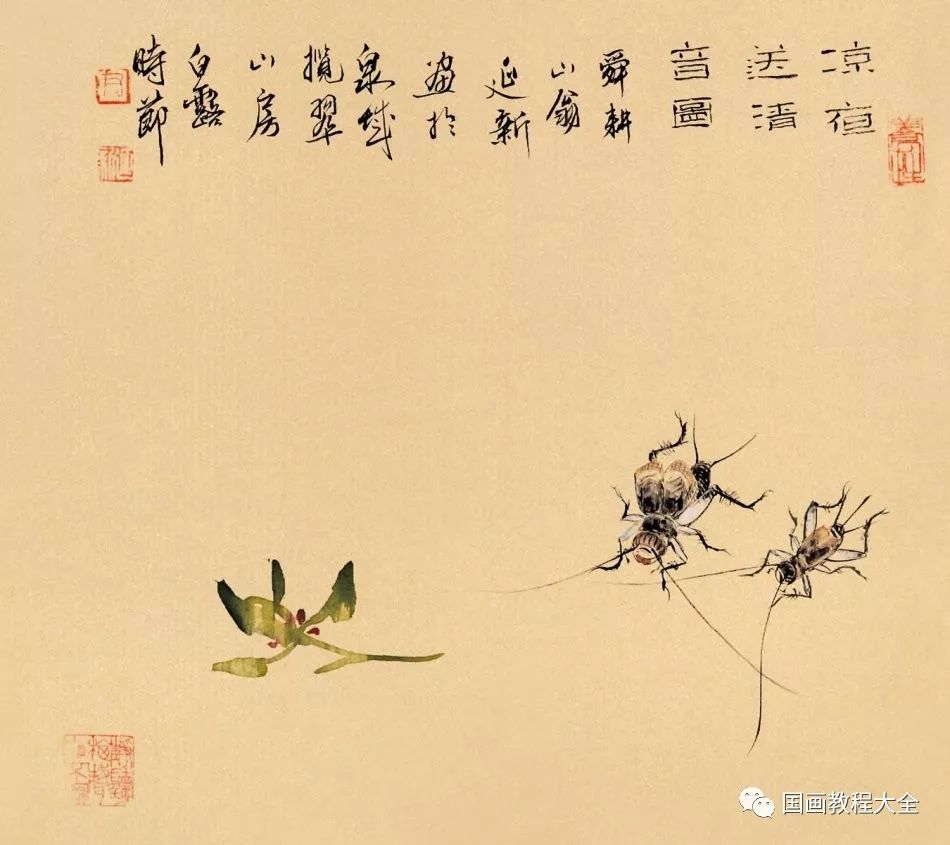 凉夜
送清
音圖
舜耕
山翁
延新
畫於
泉城
攬翠
山房
白露
時節
国画教程大全